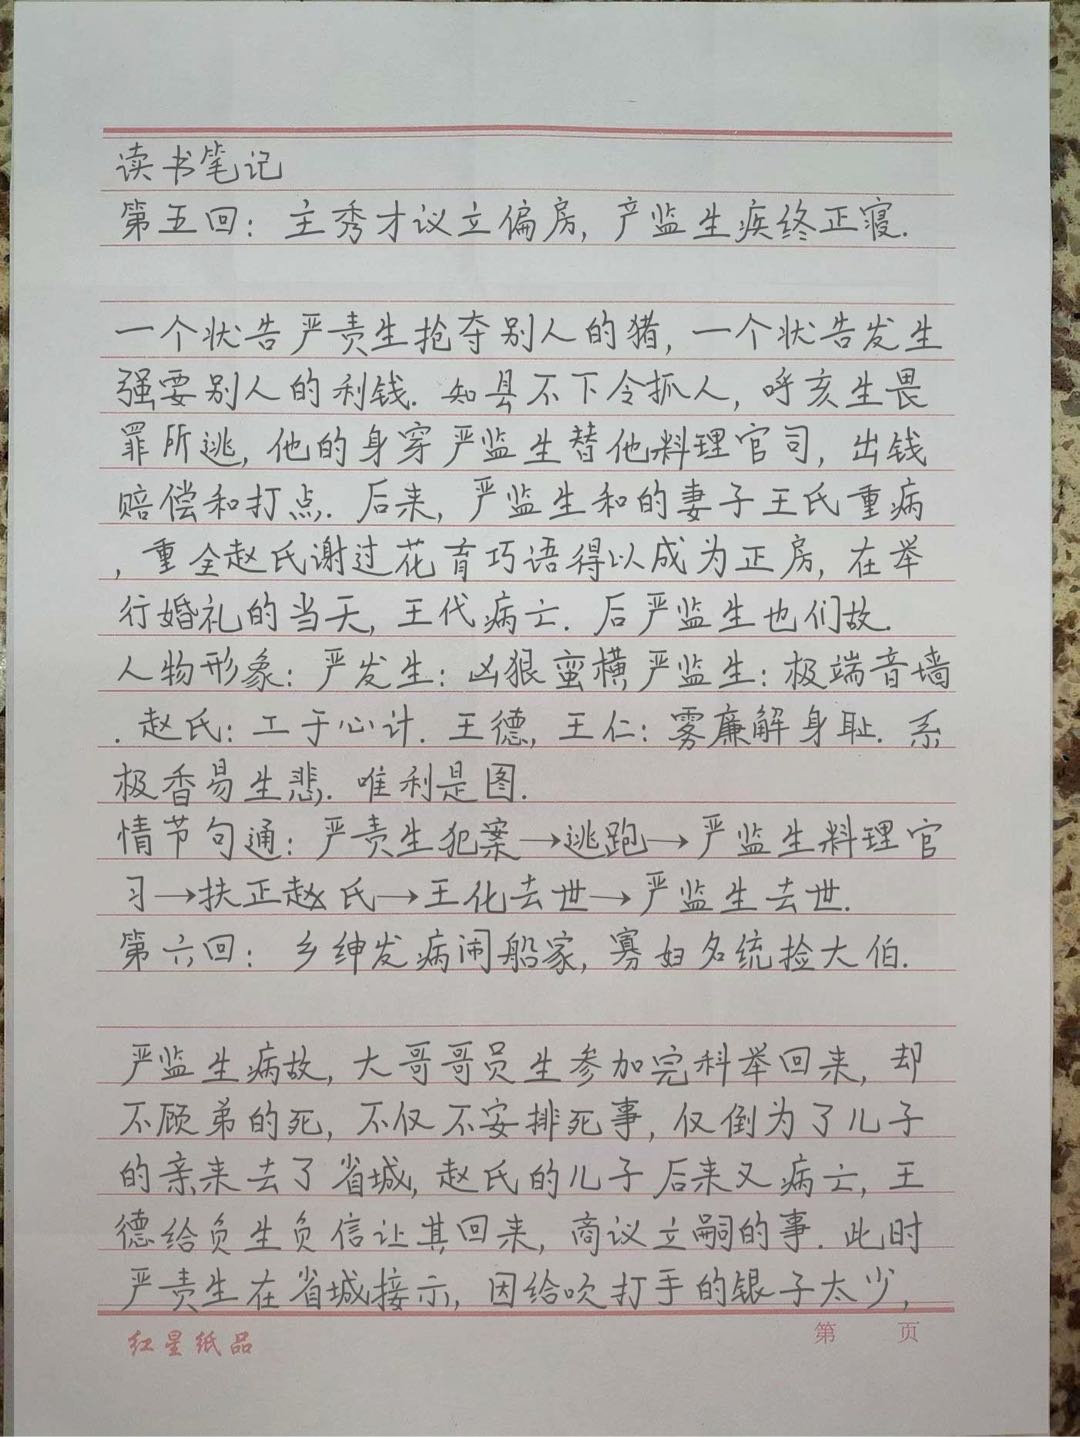 读书笔记
第五回：主秀才议立偏房，产监生疾终正寝.
一个状告严责生抢夺别人的猪，一个状告发生
强要别人的利钱.知县不下令抓人，呼亥生畏
罪所逃，他的身穿严监生替他料理官司，出钱
赔偿和打点.后来，严监生和的妻子王氏重病
，重全赵氏谢过花育巧语得以成为正房，在举
行婚礼的当天，王代病亡.后严监生也们故.
人物形象：严发生：凶狠蛮横严监生：极端音墙
.赵氏：工于心计.王德，王仁：雾廉解身耻.系
极香易生悲.唯利是图.
情节句通：严责生犯案→逃跑→严监生料理官
习→扶正赵氏→王化去世→严监生去世.
第六回：乡绅发病闹船家，寡妇名统捡大伯.
严监生病故，大哥哥员生参加完科举回来，却
不顾弟的死，不仅不安排死事，仅倒为了儿子
的亲来去了省城，赵氏的儿子后来又病亡，王
德给负生负信让其回来，商议立嗣的事.此时
严责生在省城接示，因给吹打手的银子太少，
红星纸品
第 页